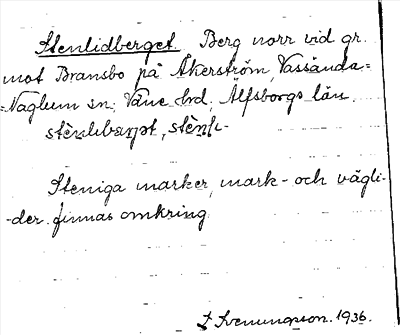 Stenlidberget. Berg norr vid gr.
mot Bransbo på Åkerström, Vassända=
=Naglum sn. Väne hd. Älfsborgs län.
Steniga marker, mark- och vägli-
-der finnas omkring.
Svenungsson. 1936.